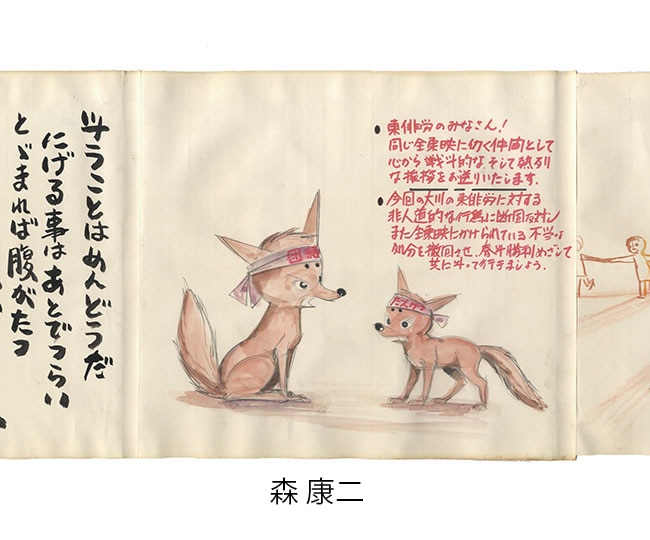 東俳労のみなさん!
同じ全東映に仂く仲間として
心から戦斗的な、そして熱烈
な挨拶をお送りいたします.
今回の大川の東俳労に対する
非人道的な行為に断固反対し
また全東映にかけられている不当な
処分を撤回させ、春斗勝利めざして
共に斗って行きましょう.
団結
だんけつ
斗うことはめんどうだ
にげる事はあとでつらい
とゞまれば腹がたつ
森 康二